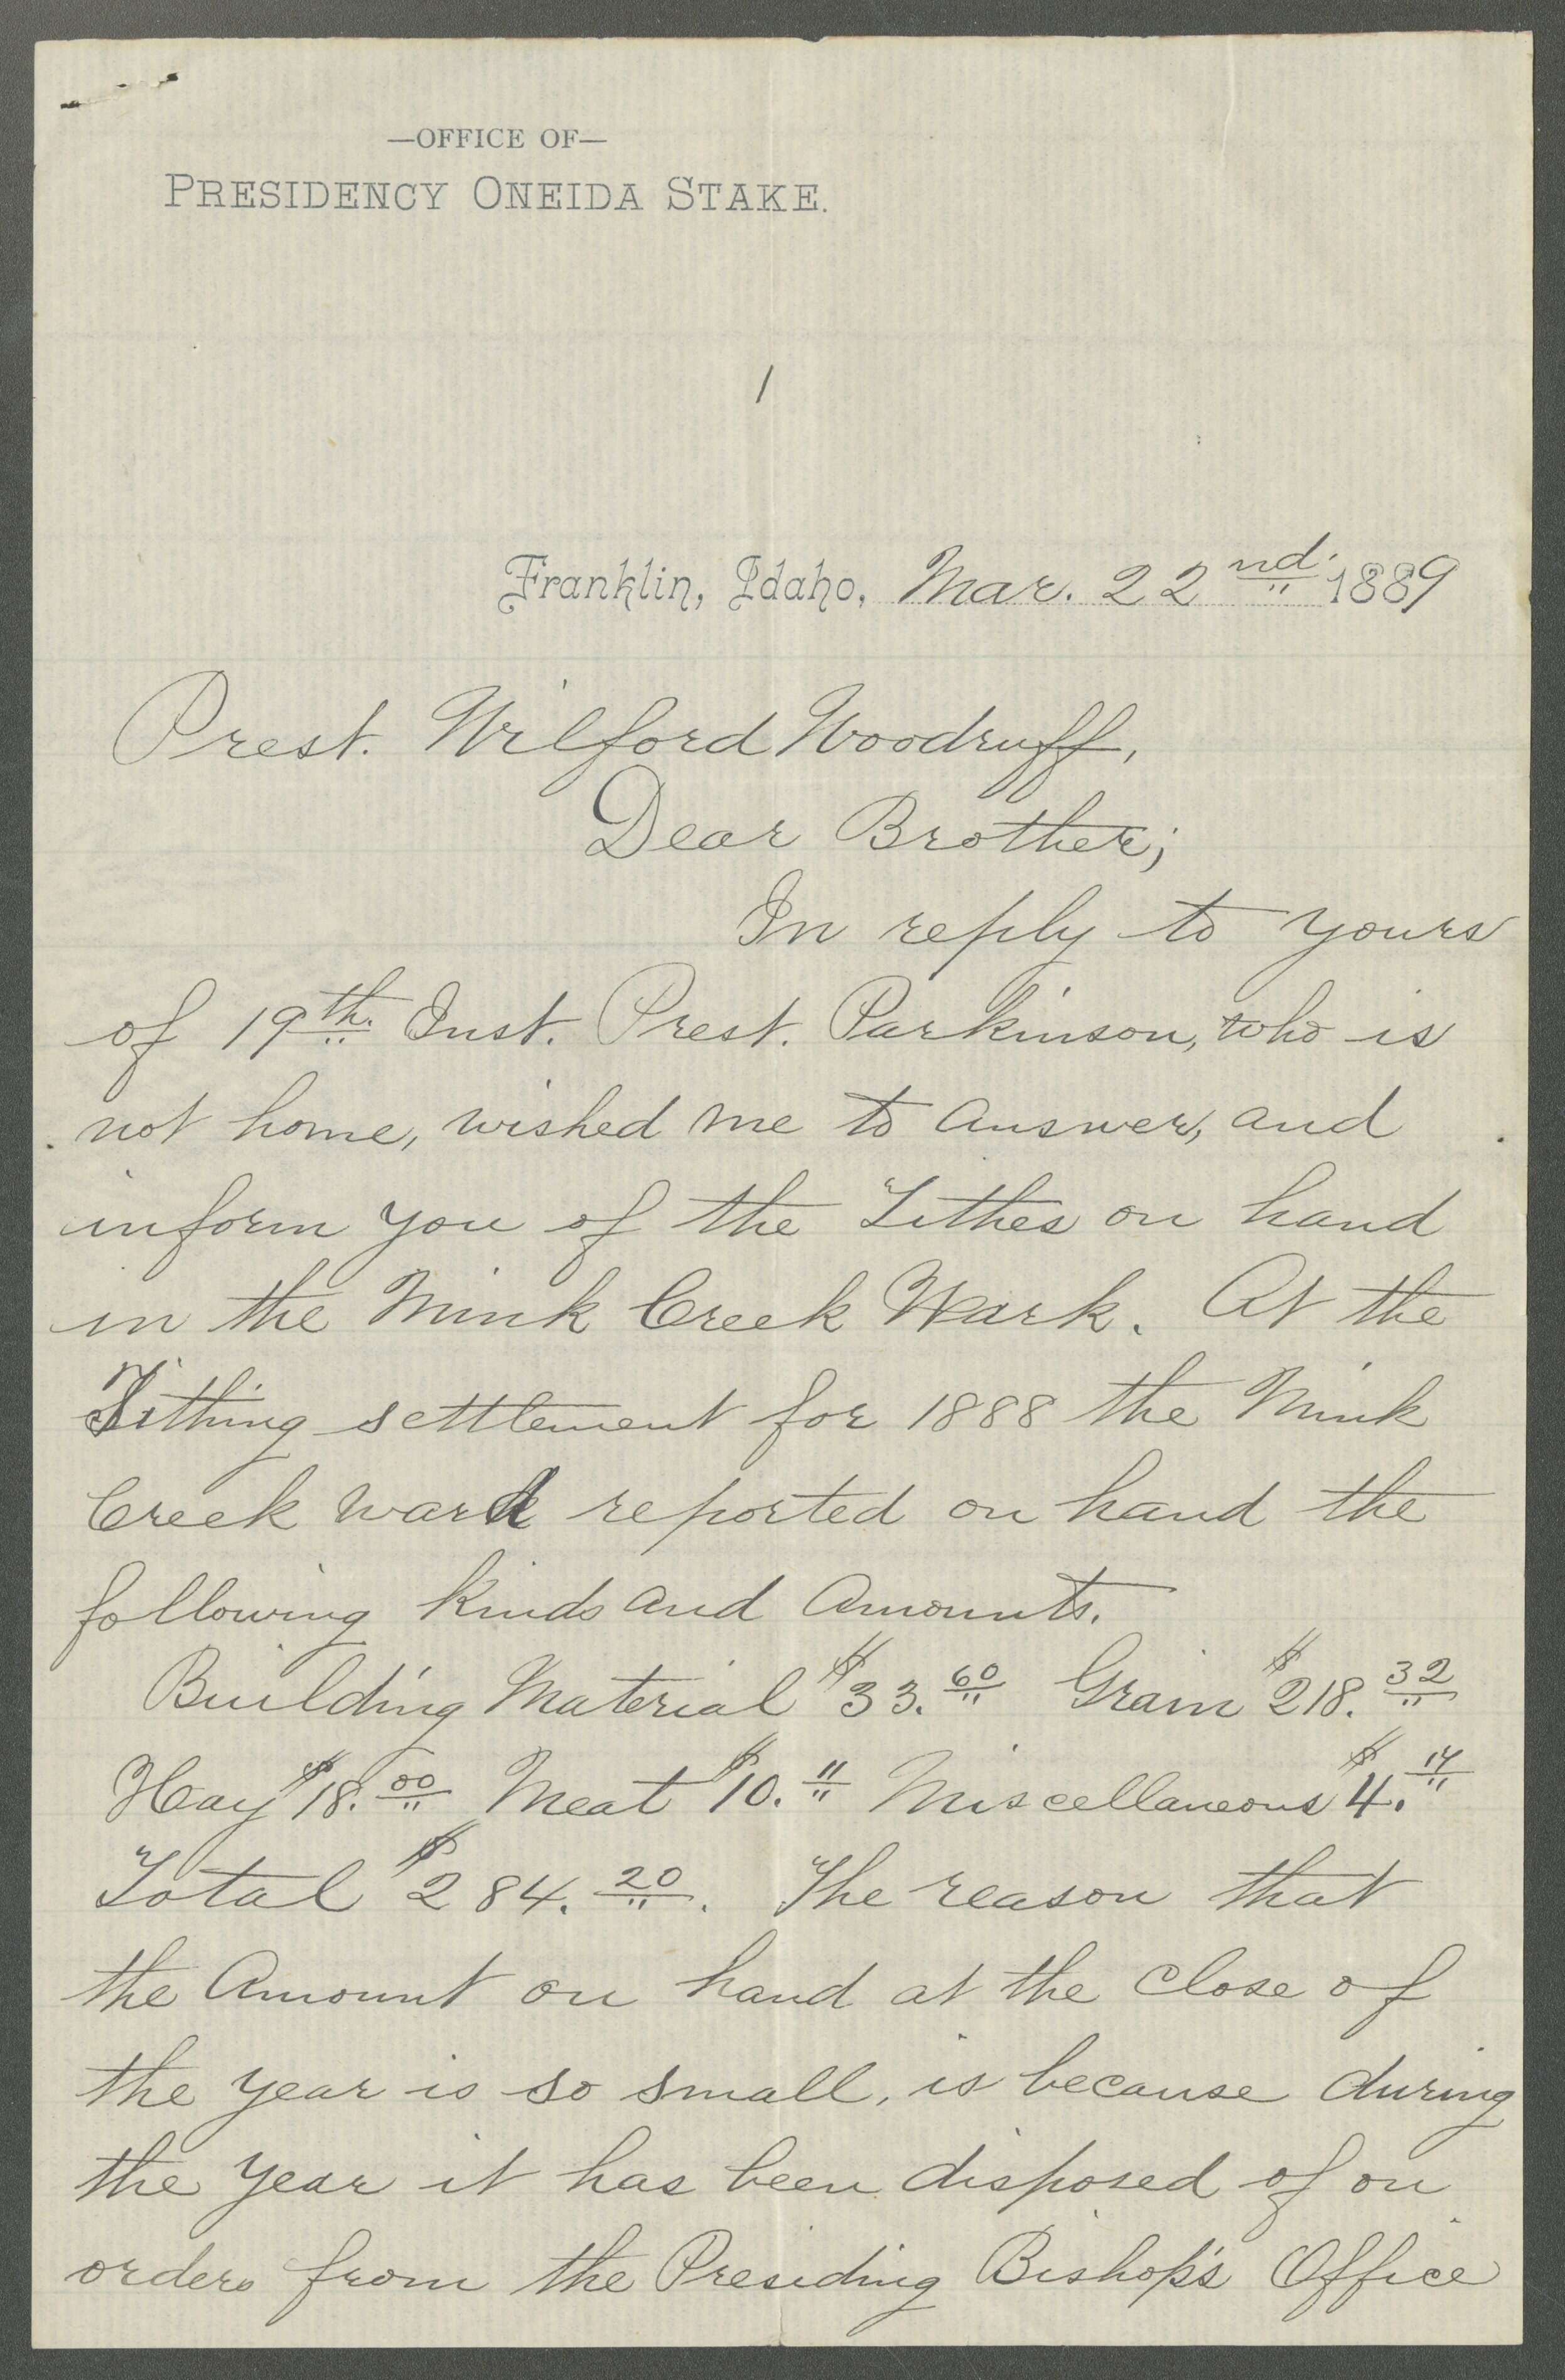 —OFFICE OF—
PRESIDENCY ONEIDA STAKE.
1
Franklin, Idaho, Mar. 22nd. 1889
Prest. Wilford Woodruff,
Dear Brother;
In reply to yours
of 19th. Inst. Prest. Parkinson, who is
not home, wished me to answer, and
inform you of the Tithes on hand
in the Mink Creek Wark. At the
Tithing settlement for 1888 the Mink
Creek ward reported on hand the
following kinds and amounts.
Building Material $33.60 Grain $218.32
Hay $18.00 Meat $10.11 Miscellaneous $4.17
Total $284.20. The reason that
the Amount on hand at the close of
the year is so small, is because during
the year it has been disposed of on
orders from the Presiding Bishop's Office